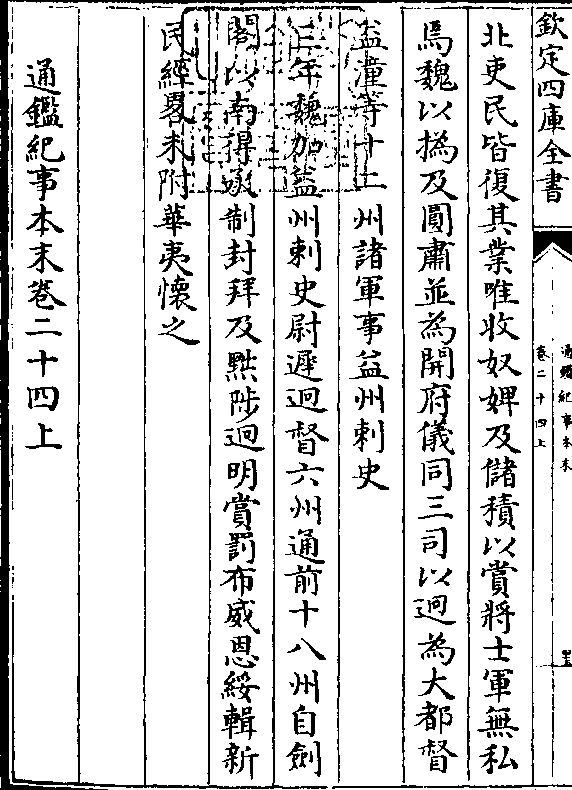 欽定四庫全書
通鑑紀事本末
卷二十四上
北吏民皆復其業唯收奴婢及儲積以賞將士軍無私
焉魏以撝及圓肅並為開府儀同三司以迥為大都督
益潼等十二州諸軍事益州刺史
三年魏加益州刺史尉遲迥督六州通前十八州自劍
閣以南得承制封拜及黜陟迥明賞罰布威恩綏輯新
民經畧未附華夷懷之
通鑑紀事本末卷二十四上